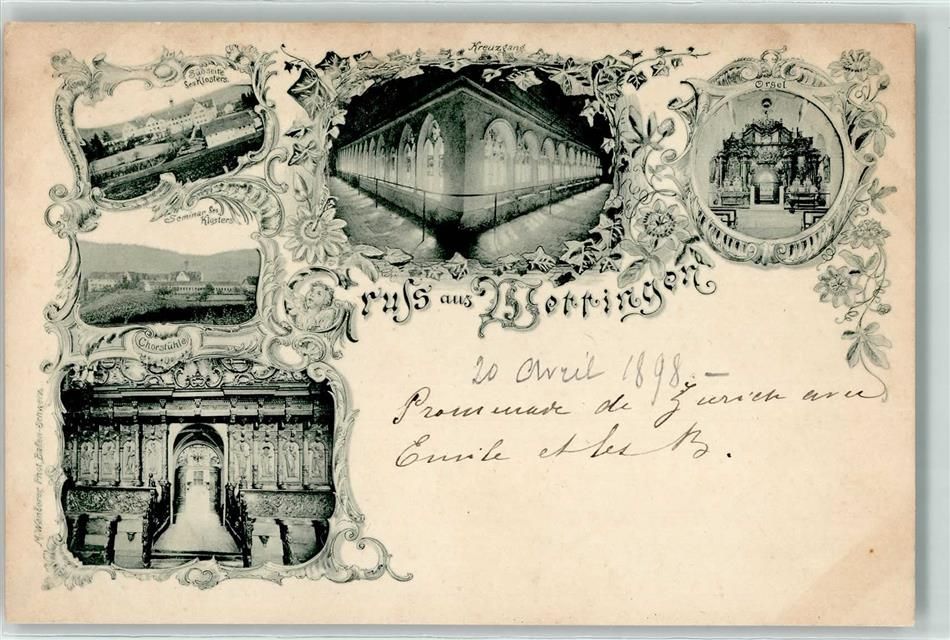 Kreuzgang
Südseite
des Klosters.
Orgel
Seminar des
Klosters
Gruss aus Wettingen
Chorstühle
20 Avril 1898.–
Promenade de Zurich avec
Emile et les B.
Phot. Baden-Schweiz.